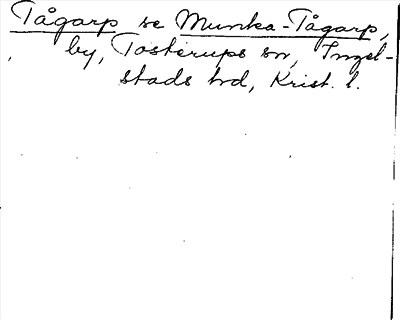 Tågarp se Munka-Tågarp,
by, Tosterups sn, Ingel-
stads hd, Krist. l.